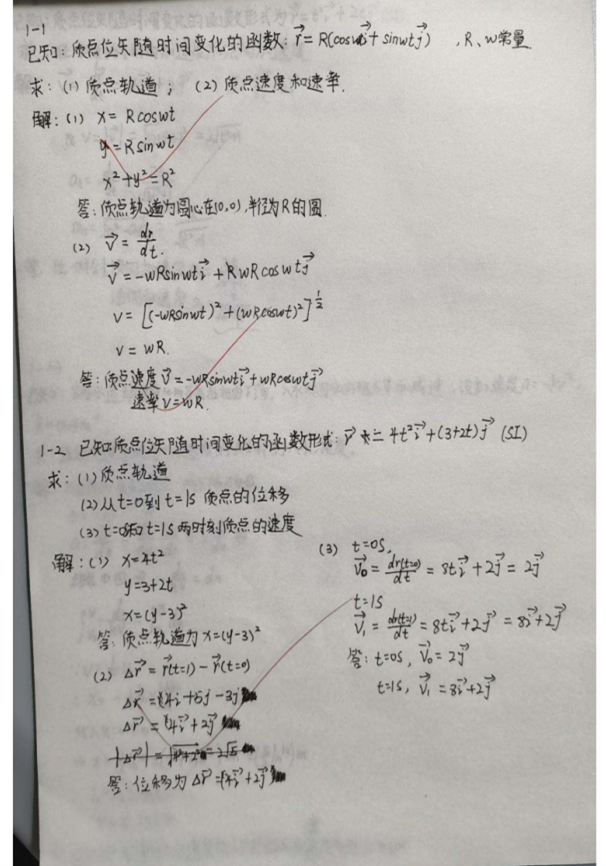 1-1
已知:质点位矢随时间变化的函数: r⃗=R(cosωti⃗+sinωtj⃗) ,R、ω常量
求:(1)质点轨道; (2)质点速度和速率.
解:(1) x=Rcosωt
y=Rsinωt
x²+y²=R²
答:质点轨道为圆心在(0,0),半径为R的圆.
(2) v⃗=dr⃗/dt.
v⃗=-ωRsinωti⃗+RωRcosωtj⃗
v=[(-ωRsinωt)²+(ωRcosωt)²]^½
v=ωR.
答:质点速度v⃗=-ωRsinωti⃗+ωRcosωtj⃗
速率v=ωR.
1-2 已知:质点位矢随时间变化的函数形式: r⃗=4t²i⃗+(3+2t)j⃗ (SI)
求:(1)质点轨道
(2)从t=0到t=1s 质点的位移
(3)t=0和t=1s两时刻质点的速度
解:(1) x=4t²
y=3+2t
x=(y-3)²
答:质点轨道为x=(y-3)²
(2) Δr⃗=r⃗(t=1)-r⃗(t=0)
Δr⃗=(4i⃗+5j⃗-3j⃗
Δr⃗=(4i⃗+2j⃗
|Δr⃗|=√4²+2²=2√5
答:位移为Δr⃗=(4i⃗+2j⃗
(3) t=0s,
v⃗₀=dr(t=0)/dt=8ti⃗+2j⃗=2j⃗
t=1s
v⃗₁=dr(t=1)/dt=8ti⃗+2j⃗=8i⃗+2j⃗
答:t=0s, v⃗₀=2j⃗
t=1s, v⃗₁=8i⃗+2j⃗